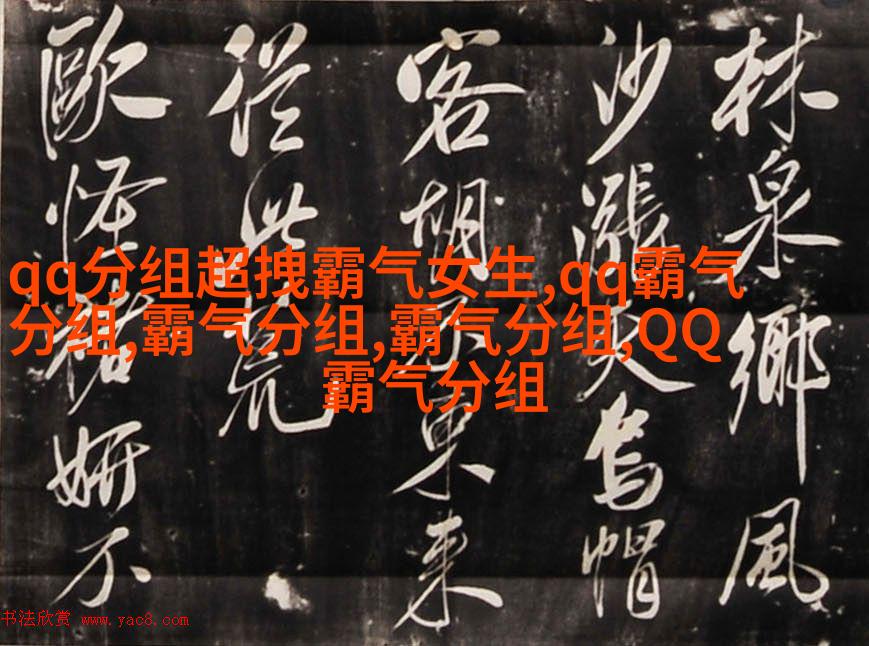 qq分组超拽霸气女生,qq霸气
分组,霸气分组,霸气分组,QQ
霸气分组
林泉鄉風
沙漲烏帽
客胡不東來
從此荒
歐怪褚妍不
书法欣赏 www.yac8.com